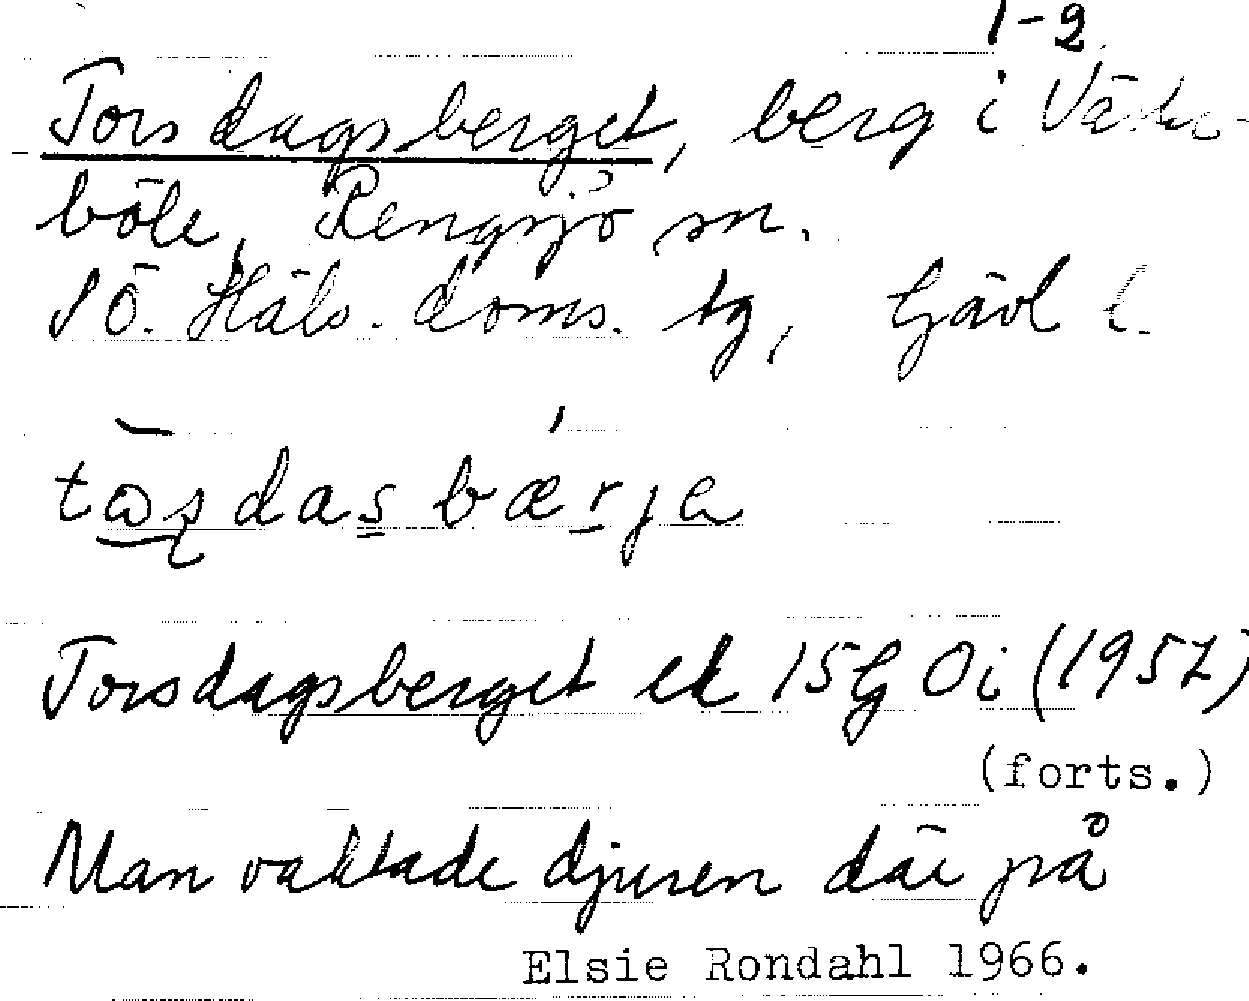 1-2
Torsdagsberget, berg i Väster-
böle, Rengsjö sn.
Sö. Häls. doms. tg, Gävl l.
tɷʂdasbærja
Torsdagsberget ek 15G 0i (1957)
(forts.)
Man vaktade djuren där på
Elsie Rondahl 1966.